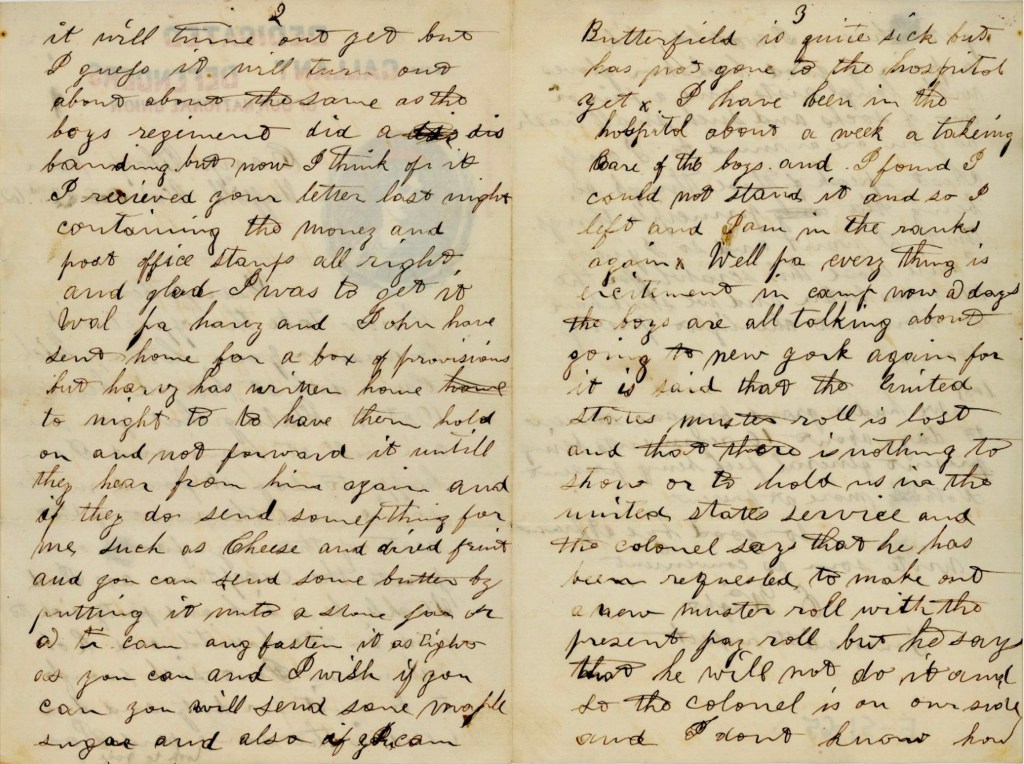 2
it will turne out yet but
I guess it will turn out
about about the same as the
boys regiment did a dis
banding but now I think of it
I recieved your letter last night
containing the money and
post office stamps all right
and glad I was to get it
Wal pa harvy and John have
sent home for a box of provisions
but harvy has writen home home
to night to to have them hold
on and not forward it untill
they hear from him again and
if they do send somepthing for
me such as Cheese and dried fruit
and you can send some butter by
putting it into a stone jar or
a tin can any fasten it as tight
as you can and I wish if you
can you will send some maple
sugar and also if you can
3
Butterfield is quite sick but
has not gone to the hospitol
yet I have been in the
hospitol about a week a takeing
Care of the boys and I found I
could not stand it and so I
left and I am in the ranks
again Well pa every thing is
excitiment in camp now a days
the boys are all talking about
going to new york again for
it is said that the united
states muster roll is lost
and that there is nothing to
show or to hold us in the
united states service and
the colonel says that he has
been requested to make out
a new muster roll with the
present pay roll but he says
that he will not do it and
so the colonel is on our side
and I dont know how